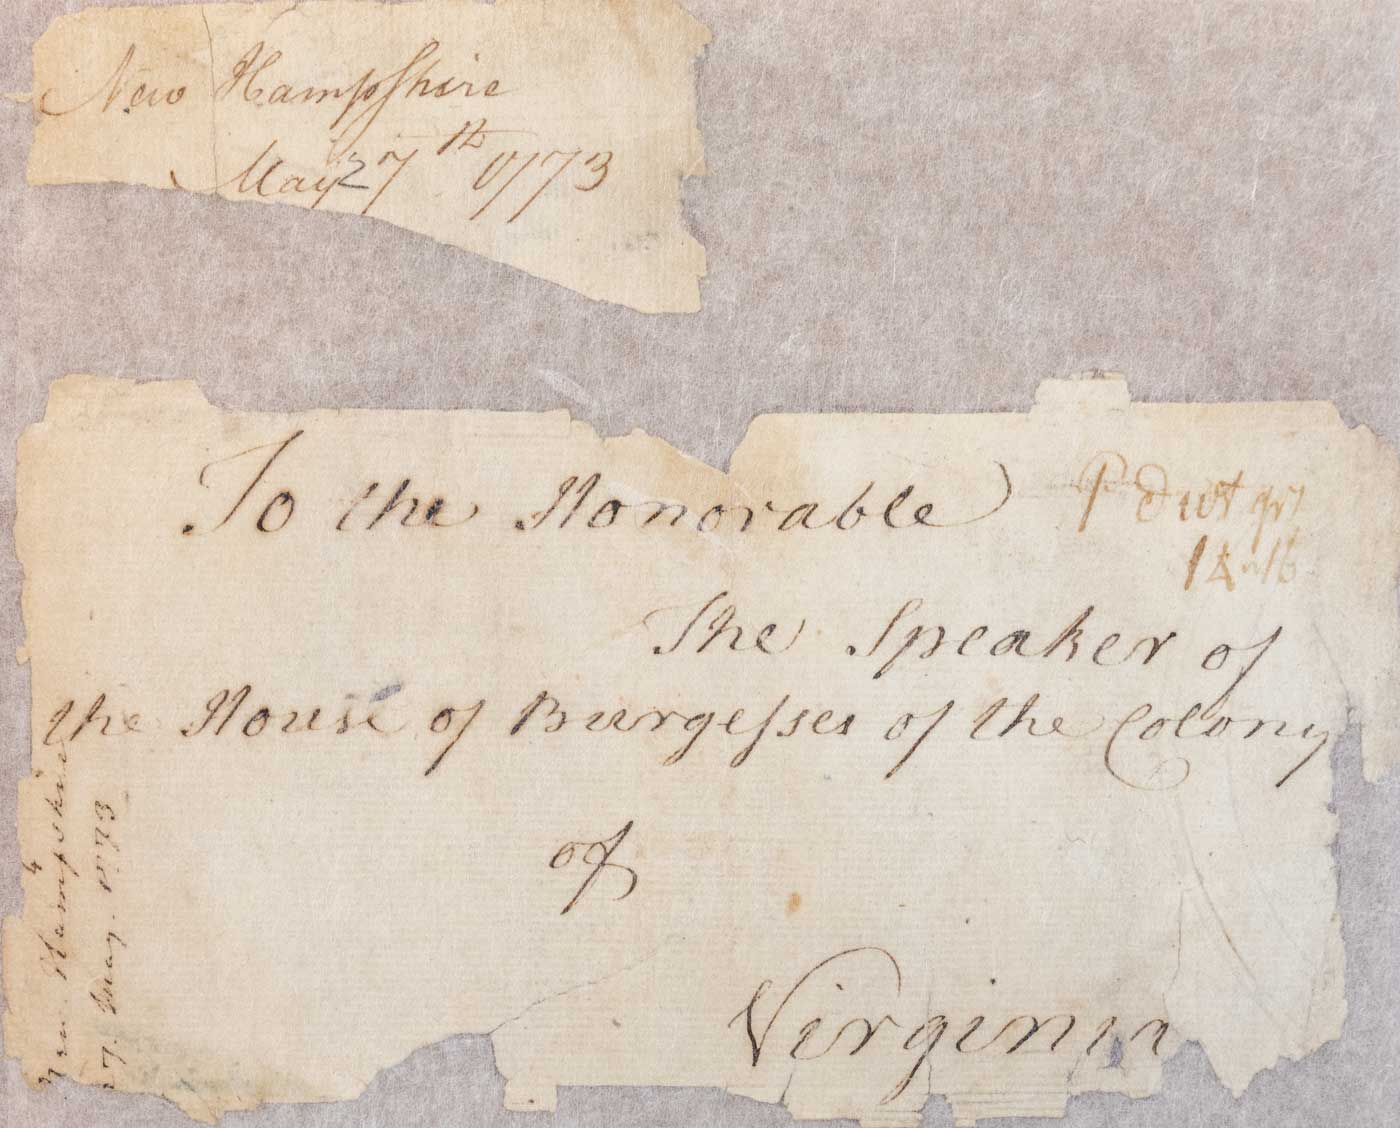 New Hampshire
May 27th 1773
To the Honorable
dwt grs
14 16
The Speaker of
the House of Burgesses of the Colony
of
Virginia
New Hampshire
27. May. 1773